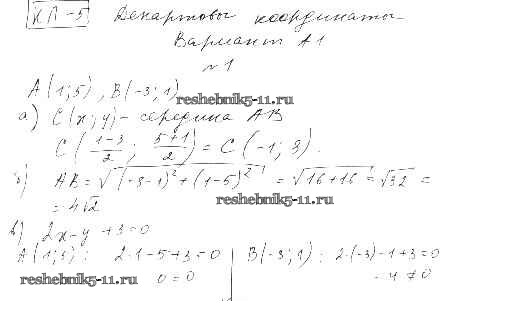 КП-5 Декартовы координаты
Вариант А1
№1
A(1;5), B(-3;1)
reshebnik5-11.ru
а) C(x;y) - середина AB
C(1-3/2; 5+1/2) = C(-1; 3).
б) AB = √(-3-1)²+(1-5)² = √16+16 = √32 =
= 4√2
reshebnik5-11.ru
в) 2x-y+3=0
A(1;5): 2·1-5+3=0 B(-3;1): 2·(-3)-1+3=0
reshebnik5-11.ru 0=0 -4≠0